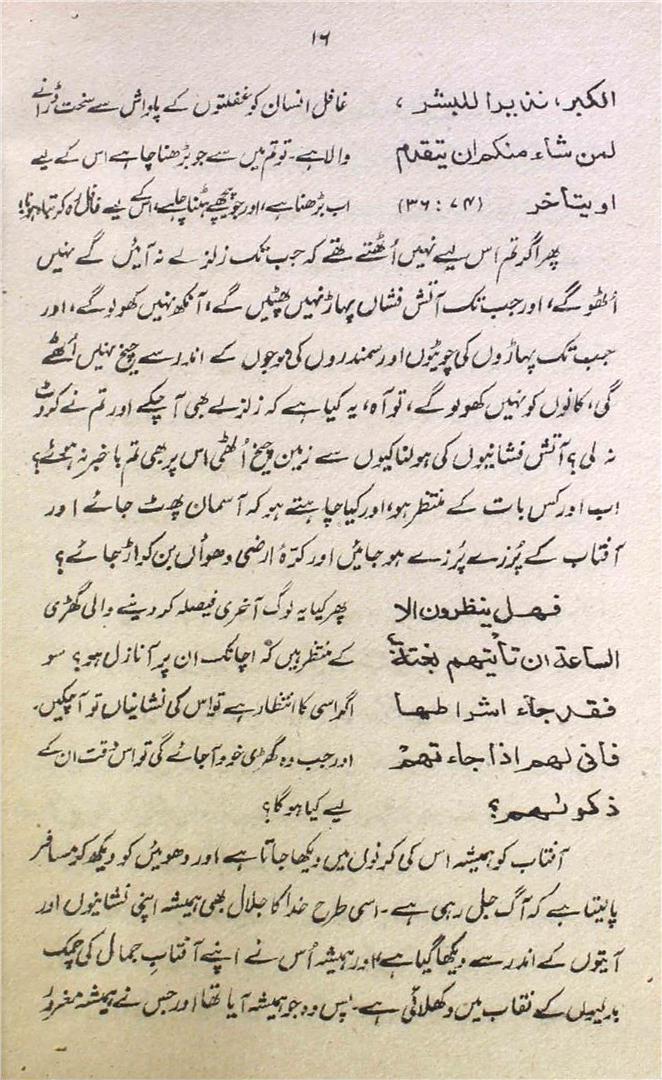 ١٦
الکبر، نذیرا للبشر، غافل انسان کو غفلتوں کے پاداش سے سخت ڈرانے
لمن شاء منکم ان یتقدم والا ہے۔ تو تم میں سے جو بڑھنا چاہے اس کے لیے
او یتأخر (۷۴: ۳۶) اب بڑھنا ہے، اور جو پیچھے ہٹنا چاہے، اس کے لیے غافل رہ کر تباہ ہونا!
پھر اگر تم اس لیے نہیں اُٹھتے تھے کہ جب تک زلزلے نہ آئیں گے نہیں
اُٹھو گے، اور جب تک آتش فشاں پہاڑ نہیں پھٹیں گے، آنکھ نہیں کھولو گے، اور
جب تک پہاڑوں کی چوٹیوں اور سمندروں کی موجوں کے اندر سے چیخ نہیں اُٹھے
گی، کانوں کو نہیں کھولو گے، تو آہ، یہ کیا ہے کہ زلزلے بھی آ چکے اور تم نے کروٹ
نہ لی؟ آتش فشانیوں کی ہولناکیوں سے زمین چیخ اُٹھی اس پر بھی تم باخبر نہ ہوئے؟
اب اور کس بات کے منتظر ہو، اور کیا چاہتے ہو کہ آسمان پھٹ جائے اور
آفتاب کے پُرزے پُرزے ہو جائیں اور کرۂ ارضی دھواں بن کر اڑ جائے؟
فهل ینظرون الا پھر کیا یہ لوگ آخری فیصلہ کر دینے والی گھڑی
الساعة ان تأتیهم بغتة کے منتظر ہیں کہ اچانک ان پر آ نازل ہو؟ سو
فقد جاء اشراطها اگر اسی کا انتظار ہے تو اس کی نشانیاں تو آ چکیں۔
فانی لهم اذا جاء تهم اور جب وہ گھڑی خود آ جائے گی تو اس وقت ان کے
ذکرٰهم؟ لیے کیا ہو گا؟
آفتاب کو ہمیشہ اس کی کرنوں میں دیکھا جاتا ہے اور دھوئیں کو دیکھ کر مسافر
پا لیتا ہے کہ آگ جل رہی ہے۔ اسی طرح خدا کا جلال بھی ہمیشہ اپنی نشانیوں اور
آیتوں کے اندر سے دیکھا گیا ہے، اور ہمیشہ اُس نے اپنے آفتابِ جمال کی چمک
بدلیوں کے نقاب میں دکھلائی ہے۔ پس وہ جو ہمیشہ آیا تھا اور جس نے ہمیشہ مغرور